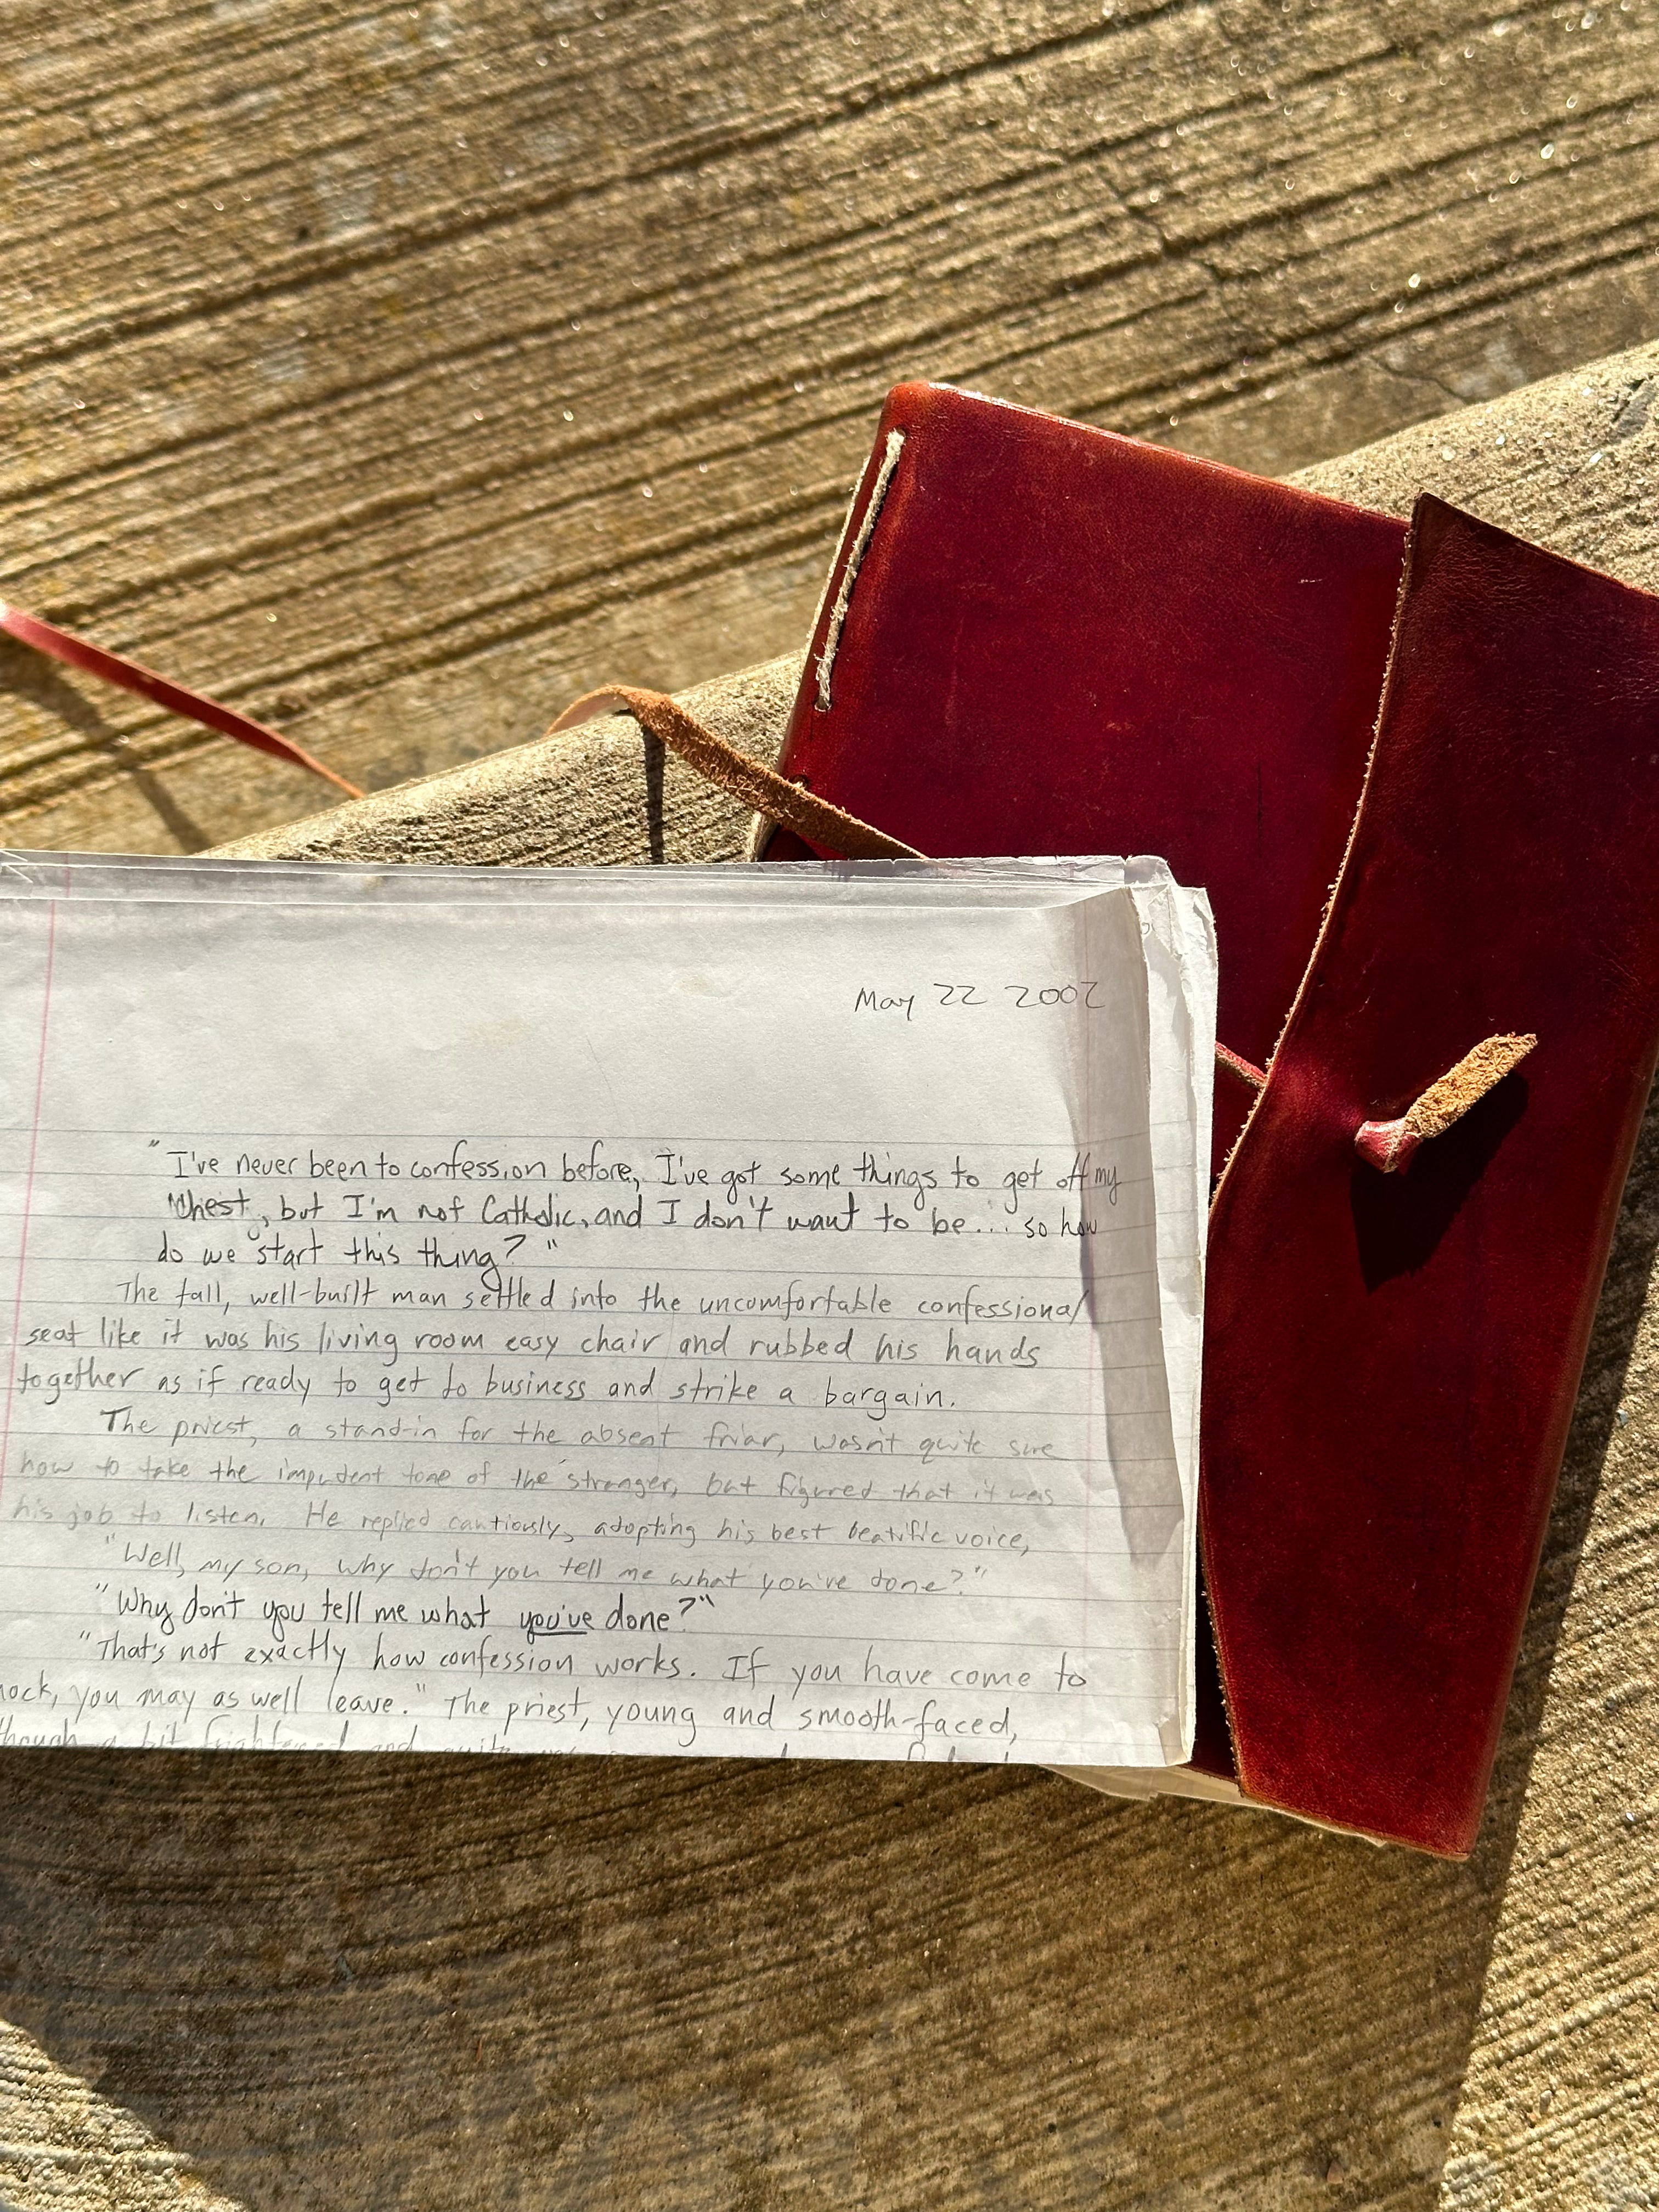 May 22 2002
"I've never been to confession before, I've got some things to get off my
chest, but I'm not Catholic, and I don't want to be... so how
do we start this thing?"
The tall, well-built man settled into the uncomfortable confessional
seat like it was his living room easy chair and rubbed his hands
together as if ready to get to business and strike a bargain.
The priest, a stand-in for the absent friar, wasn't quite sure
how to take the impudent tone of the stranger, but figured that it was
his job to listen. He replied cautiously, adopting his best beatific voice,
"Well, my son, why don't you tell me what you've done?"
"Why don't you tell me what you've done?"
"That's not exactly how confession works. If you have come to
mock, you may as well leave." The priest, young and smooth-faced,
though a bit frightened and quite